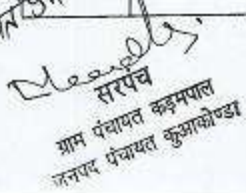 सरपंच
ग्राम पंचायत कड़मपाल
जनपद पंचायत कुआकोण्डा